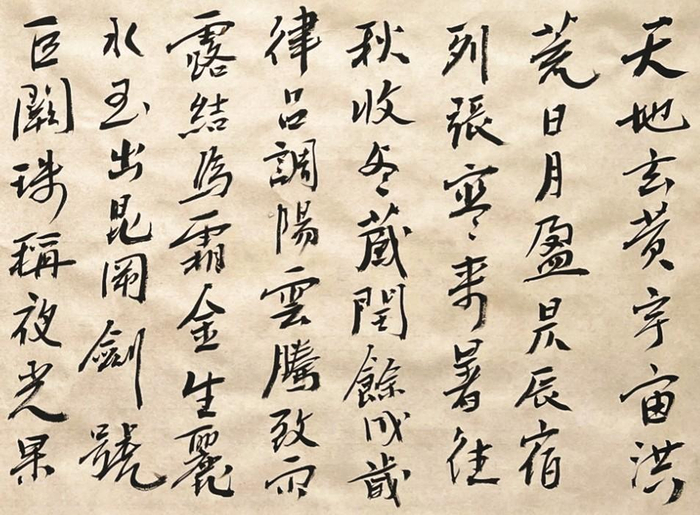 天地玄黄宇宙洪
荒日月盈昃辰宿
列張寒来暑往
秋收冬蔵閏餘成歲
律呂調陽雲騰致雨
露結為霜金生麗
水玉出崑岡劍號
巨闕珠稱夜光果